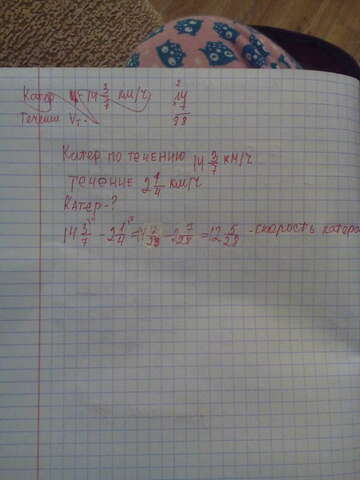 Катер 14 3/7 км/ч
Течения Vт -
14
× 7
98
Катер по течению 14 3/7 км/ч
Течение 2 1/4 км/ч
Катер - ?
14 3/7 - 2 1/4 = 2 7/28 = 12 5/28 - скорость катера